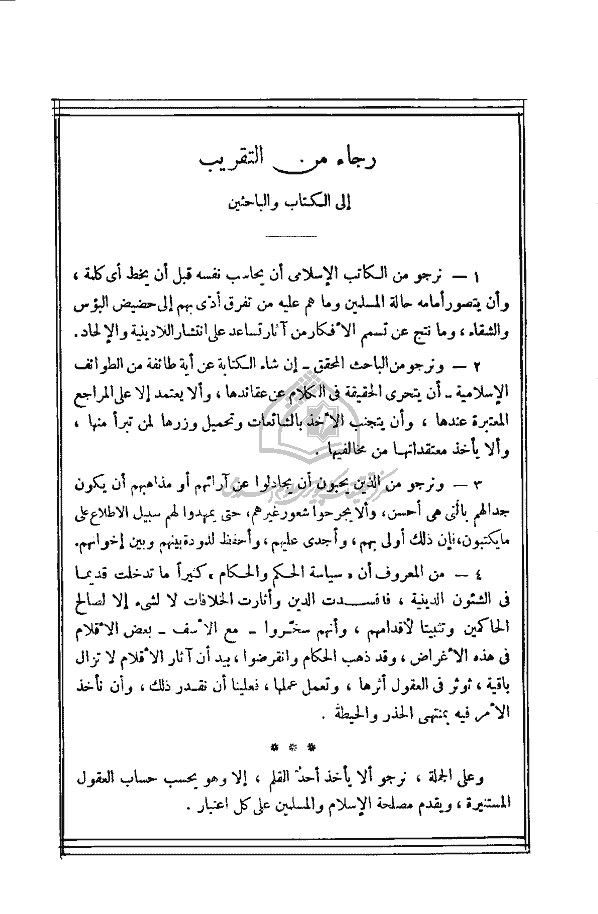 رجاء من التقريب
إلى الكتاب والباحثين
١ — نرجو من الكاتب الإسلامى أن يحاسب نفسه قبل أن يخط أى كلمة ،
وأن يتصور أمامه حالة المسلمين وما هم عليه من تفرق أدى بهم إلى حضيض البؤس
والشقاء ، وما نتج عن تسمم الأفكار من آثار تساعد على انتشار اللادينية والإلحاد.
٢ — ونرجو من الباحث المحقق - إن شاء الكتابة عن أية طائفة من الطوائف
الإسلامية - أن يتحرى الحقيقة فى الكلام عن عقائدها ، وألا يعتمد إلا على المراجع
المعتبرة عندها ، وأن يتجنب الأخذ بالشائعات وتحميل وزرها لمن تبرأ منها ،
وألا يأخذ معتقداتها من مخالفيها .
٣ — ونرجو من الذين يحبون أن يجادلوا عن آرائهم أو مذاهبهم أن يكون
جدالهم بالتى هى أحسن، وألا يجرحوا شعور غيرهم، حتى يمهدوا لهم سبيل الاطلاع على
ما يكتبون، فإن ذلك أولى بهم، وأجدى عليهم، وأحفظ لمودة بينهم وبين إخوانهم.
٤ — من المعروف أن « سياسة الحكم والحكام » كثيراً ما تدخلت قديما
فى الشئون الدينية ، فأفسدت الدين وأثارت الخلافات لا لشىء إلا لصالح
الحاكمين وتثبيتا لأقدامهم ، وأنهم سخّروا - مع الأسف - بعض الأقلام
فى هذه الأغراض ، وقد ذهب الحكام وانقرضوا ، بيد أن آثار الأقلام لا تزال
باقية ، تؤثر فى العقول أثرها ، وتعمل عملها ، فعلينا أن نقدر ذلك ، وأن نأخذ
الأمر فيه بمنتهى الحذر والحيطة .
* * *
وعلى الجملة ، نرجو ألا يأخذ أحدٌ القلم ، إلا وهو يحسب حساب العقول
المستنيرة ، ويقدم مصلحة الإسلام والمسلمين على كل اعتبار .